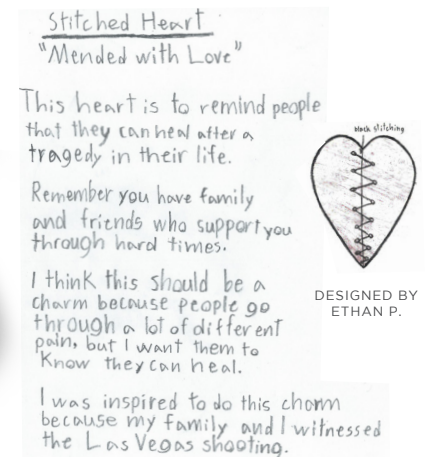 Stitched Heart
"Mended with Love"
This heart is to remind people
that they can heal after a
tragedy in their life.
Remember you have family
and friends who support you
through hard times.
I think this should be a
charm because people go
through a lot of different
pain, but I want them to
Know they can heal.
I was inspired to do this charm
because my family and I witnessed
the Las Vegas shooting.
black stitching
DESIGNED BY
ETHAN P.